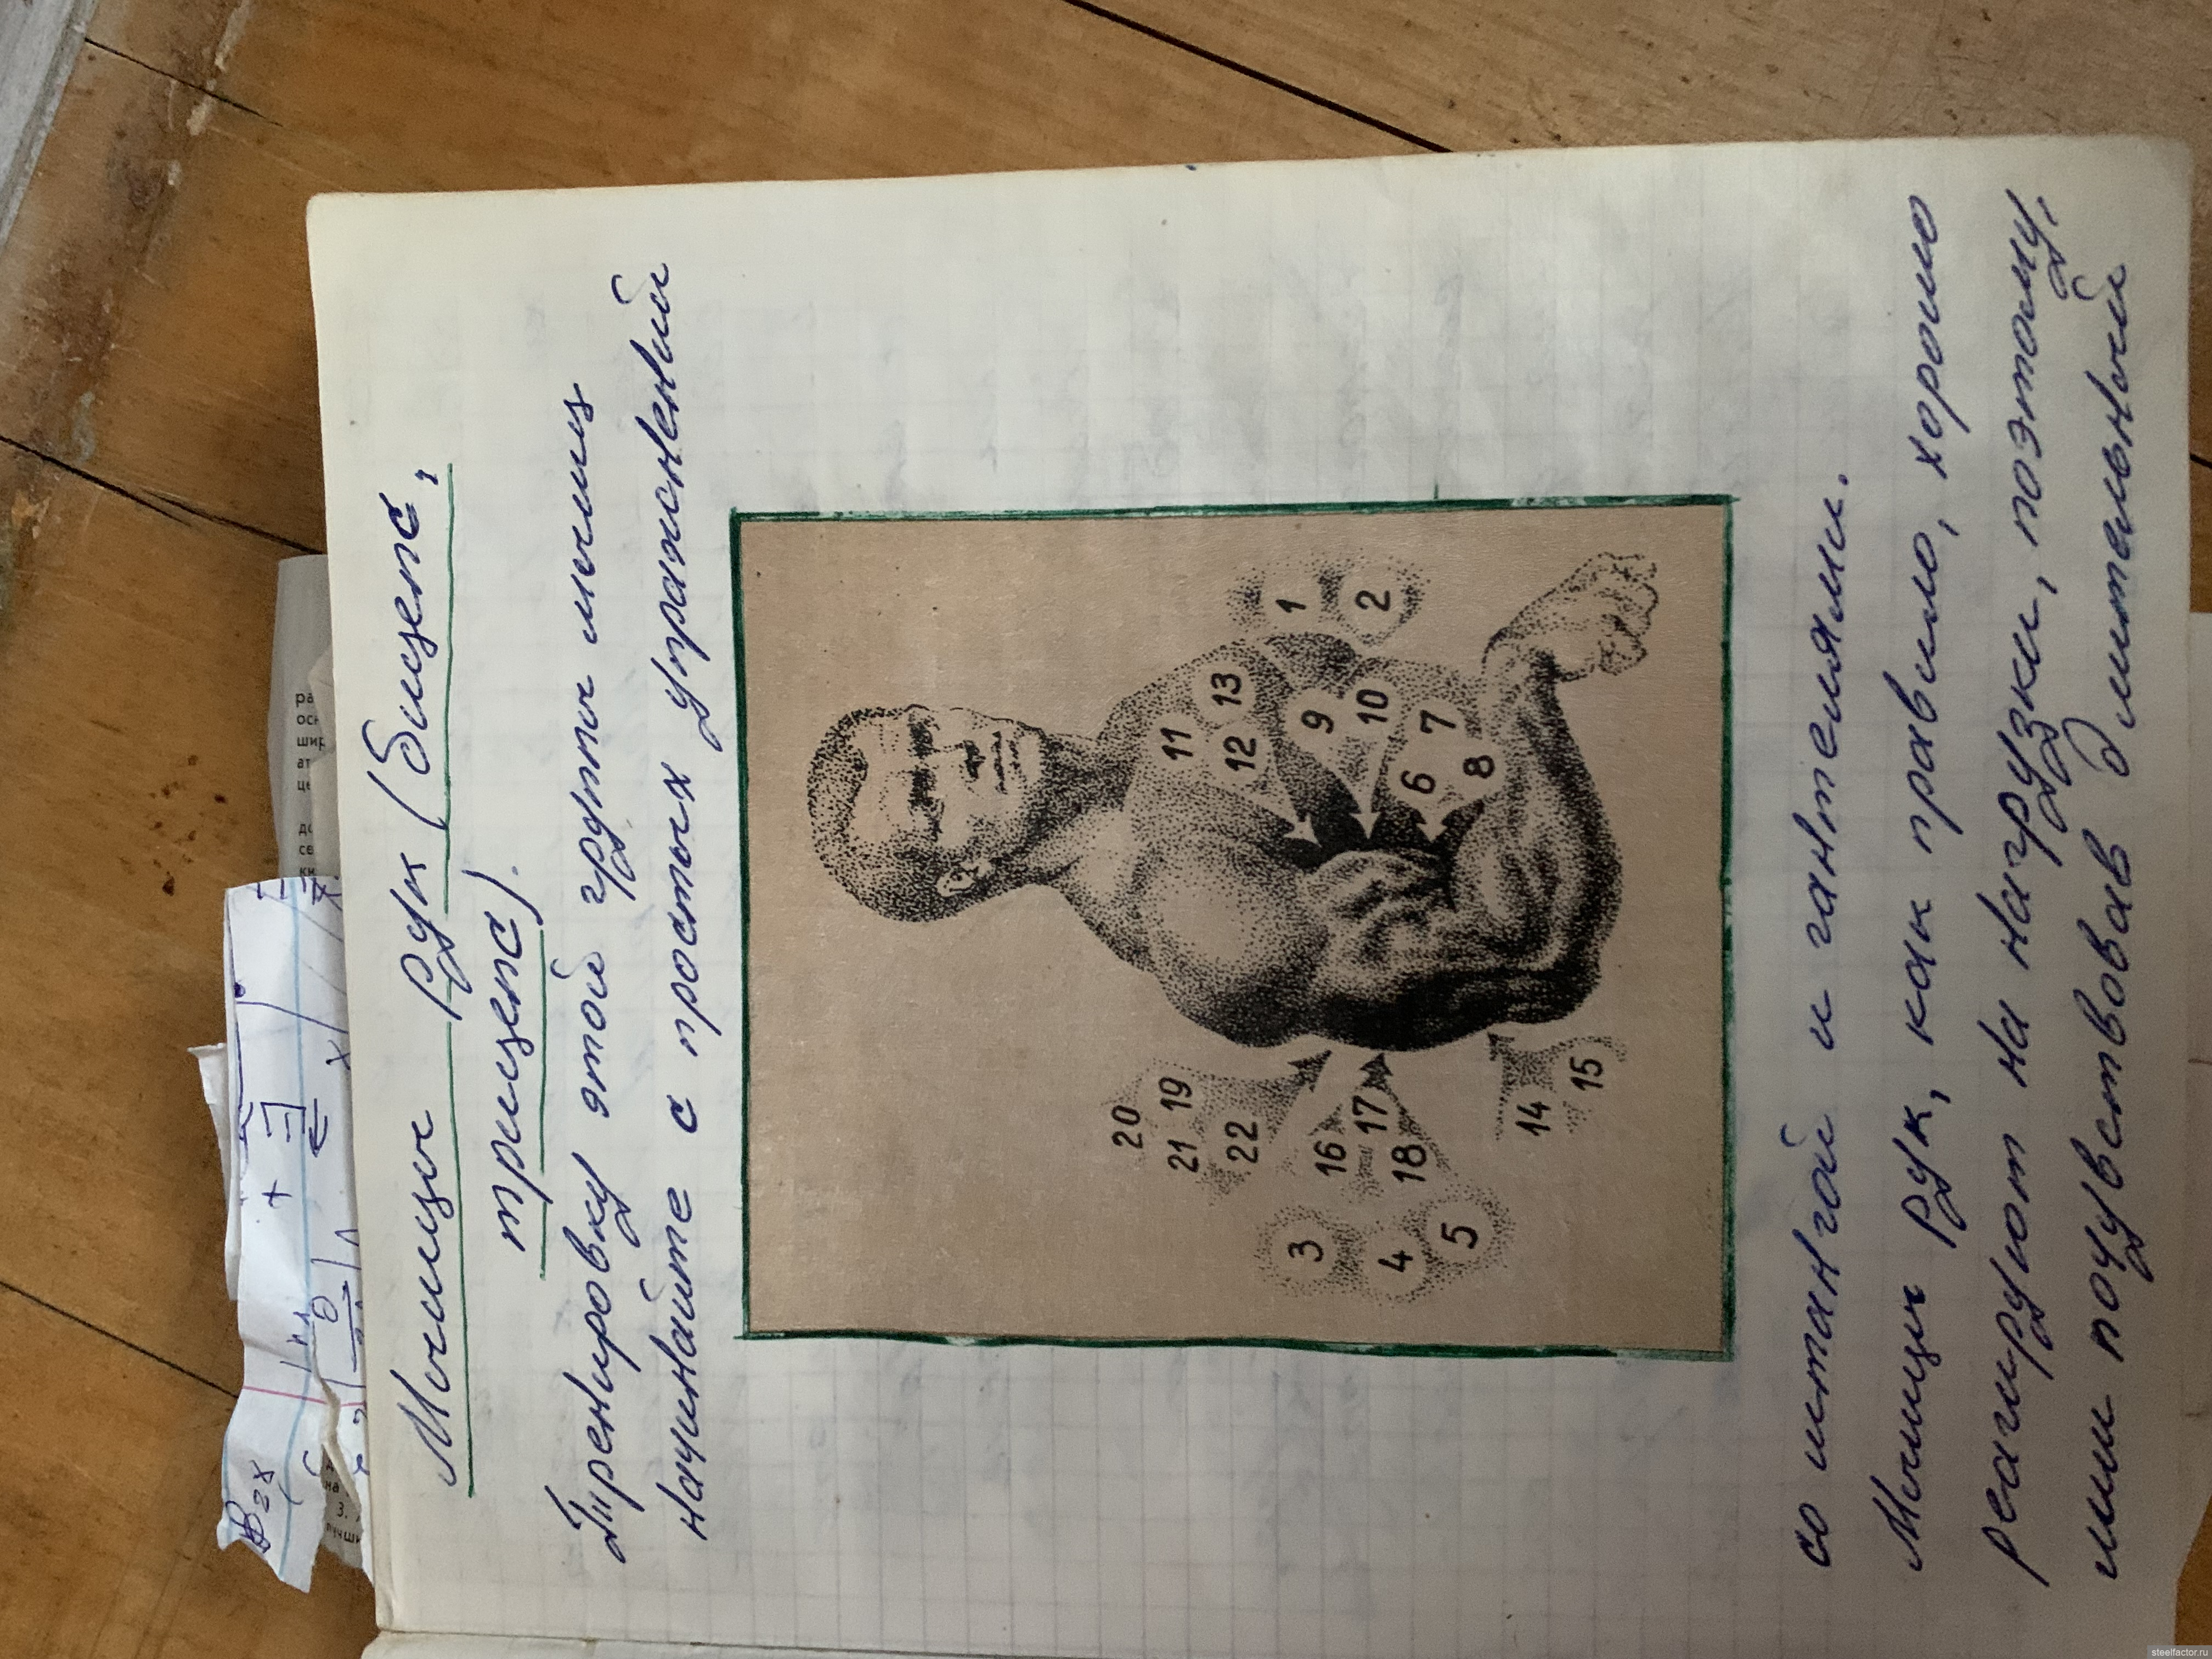 Мышцы рук (бицепс,
трицепс).
Тренировку этой группы мышц
начинайте с простых упражнений
11
13
12
9
10
7
6
8
1
2
20
19
21
22
16
17
18
3
4
5
14
15
со штангой и гантелями.
Мышцы рук, как правило, хорошо
реагируют на нагрузки, поэтому,
или почувствовав длительный
steelfactor.ru